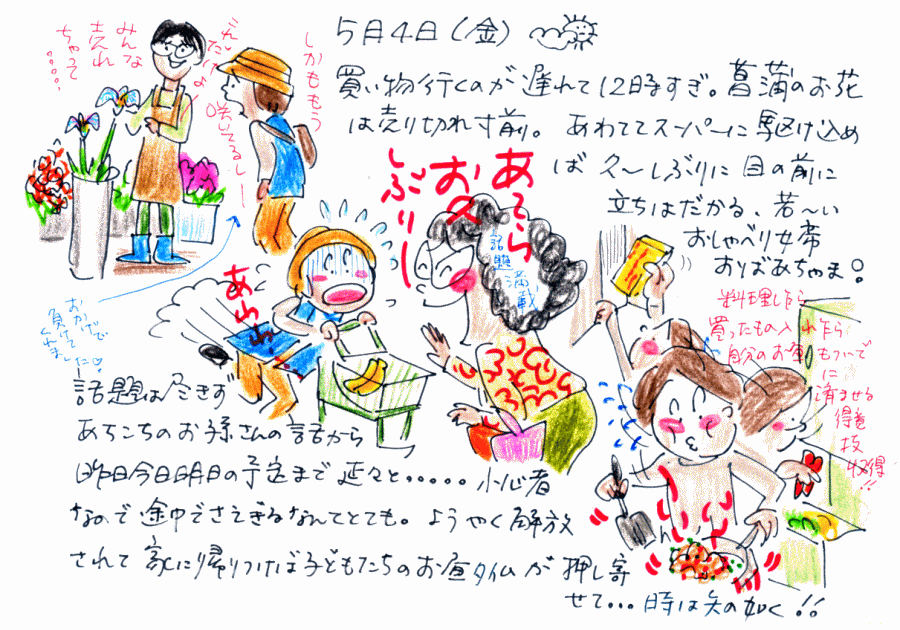 5月4日(金)
買い物行くのが遅れて12時すぎ。菖蒲のお花
は売り切れ寸前。あわててスーパーに駆け込め
ば久〜しぶりに目の前に
立ちはだかる、若〜い
おしゃべり女帝
おりばあちゃま。
みんな
売れ
ちゃって
....
しかももう
ぜんぶ
咲いてるしー
おかげで
負けて
くれました♡
あわわ
あ〜ら
おひさ
しぶりー
話題
満載
料理しながら
買ったもの入れ乍ら
自分のお昼もついで
に
済ませる
得意
技
収得
!!
話題は尽きず
あちこちのお孫さんの話から
昨日今日明日の予定まで延々と.....小心者
なので途中でさえぎるなんてとても。ようやく解放
されて家に帰りつけば子どもたちのお昼タイムが押し寄
せて...時は矢の如く!!